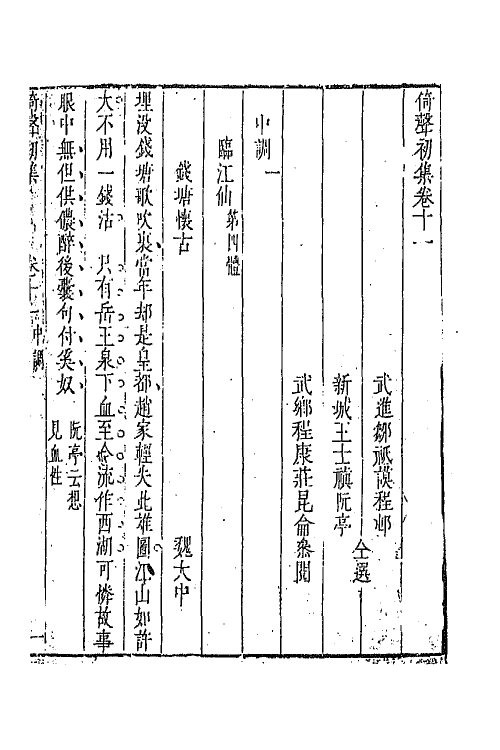 倚聲初集卷十一
武進鄒祗謨程邨
仝選
新城王士禛阮亭
武鄉程康莊昆侖叅閱
中調一
臨江仙第四體
錢塘懷古
魏大中
埋沒錢塘歌吹裏當年却是皇都趙家輕失此雄圖江山如許
大不用一錢沽　只有岳王泉下血至今流作西湖可憐故事
眼中無但供儂醉後囊句付奚奴
阮亭云想
見血性
倚聲初集
卷十一中調
一